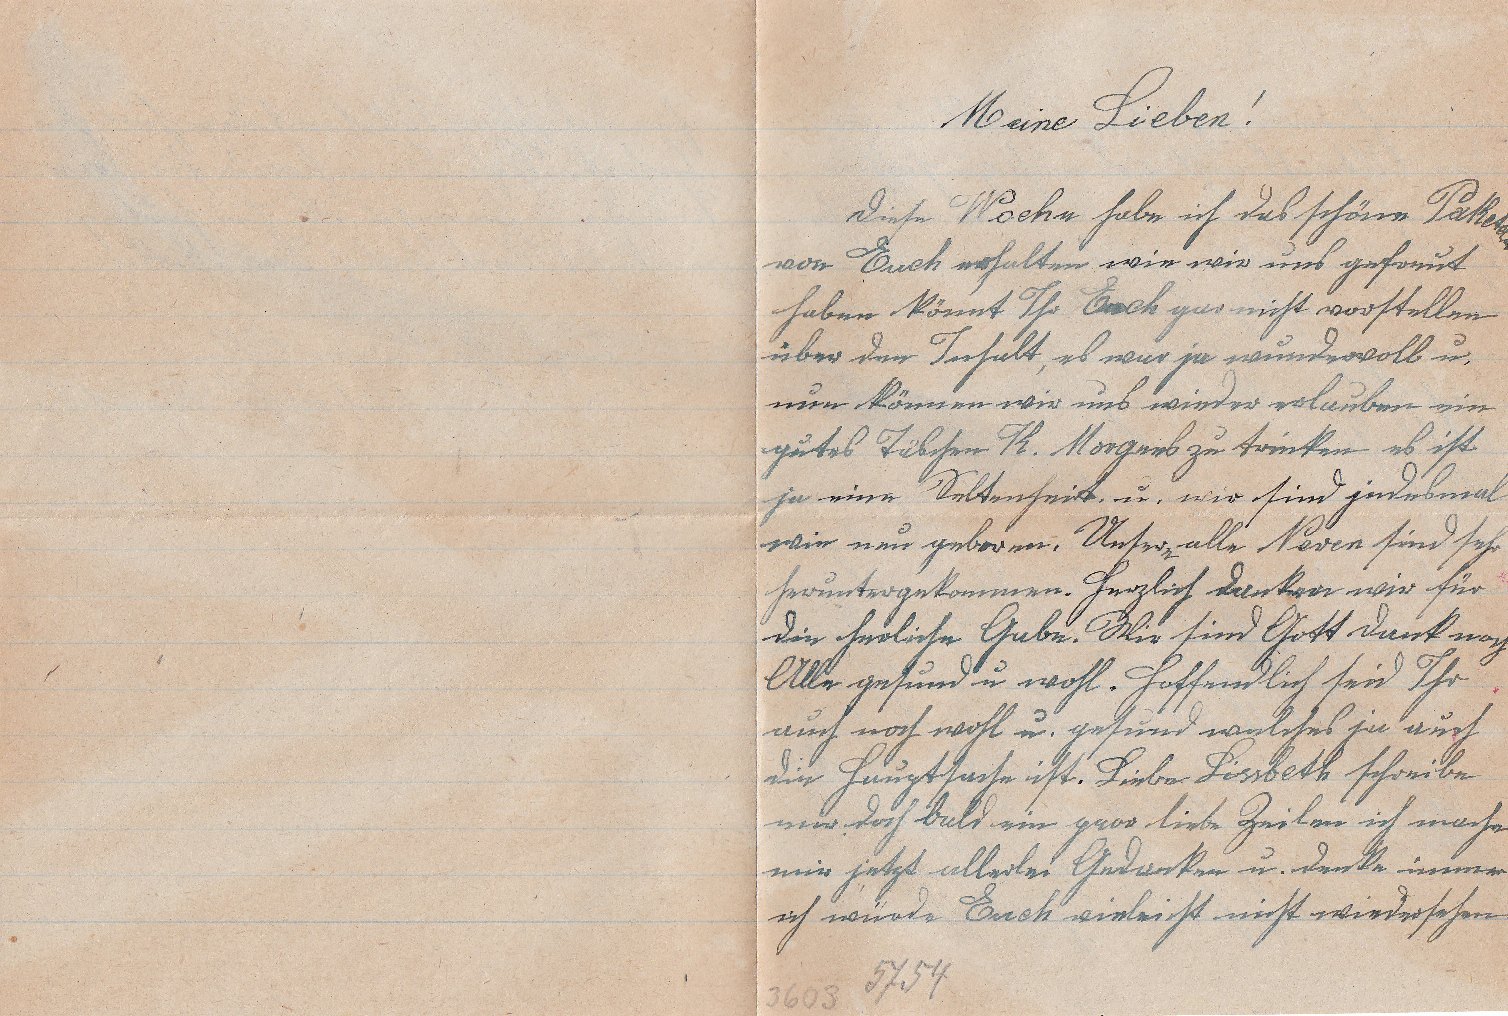 Meine Lieben!
Diese Woche habe ich das schöne Paketch.
von Euch erhalten wie wir uns gefreut
haben könnt Ihr Euch gar nicht vorstellen
über den Inhalt, es war ja wundervoll u.
nun können wir uns wieder erlauben ein
gutes Täschen K. Morgens zu trinken es ist
ja eine Seltenheit. u. wir sind jedesmal
wie neu geboren. Unsere alle Nerven sind sehr
heruntergekommen. Herzlich danken wir für
die herliche Gabe. Wir sind Gott dank noch
Alle gesund u wohl. Hoffendlich seid Ihr
auch noch wohl u. gesund welches ja auch
die Hauptsache ist. Liebe Lissbeth schreibe
mir doch bald ein paar liebe Zeilen ich mache
mir jetzt allerlei Gedanken u. denke immer
ich würde Euch vieleicht nicht wiedersehen
5754
3603